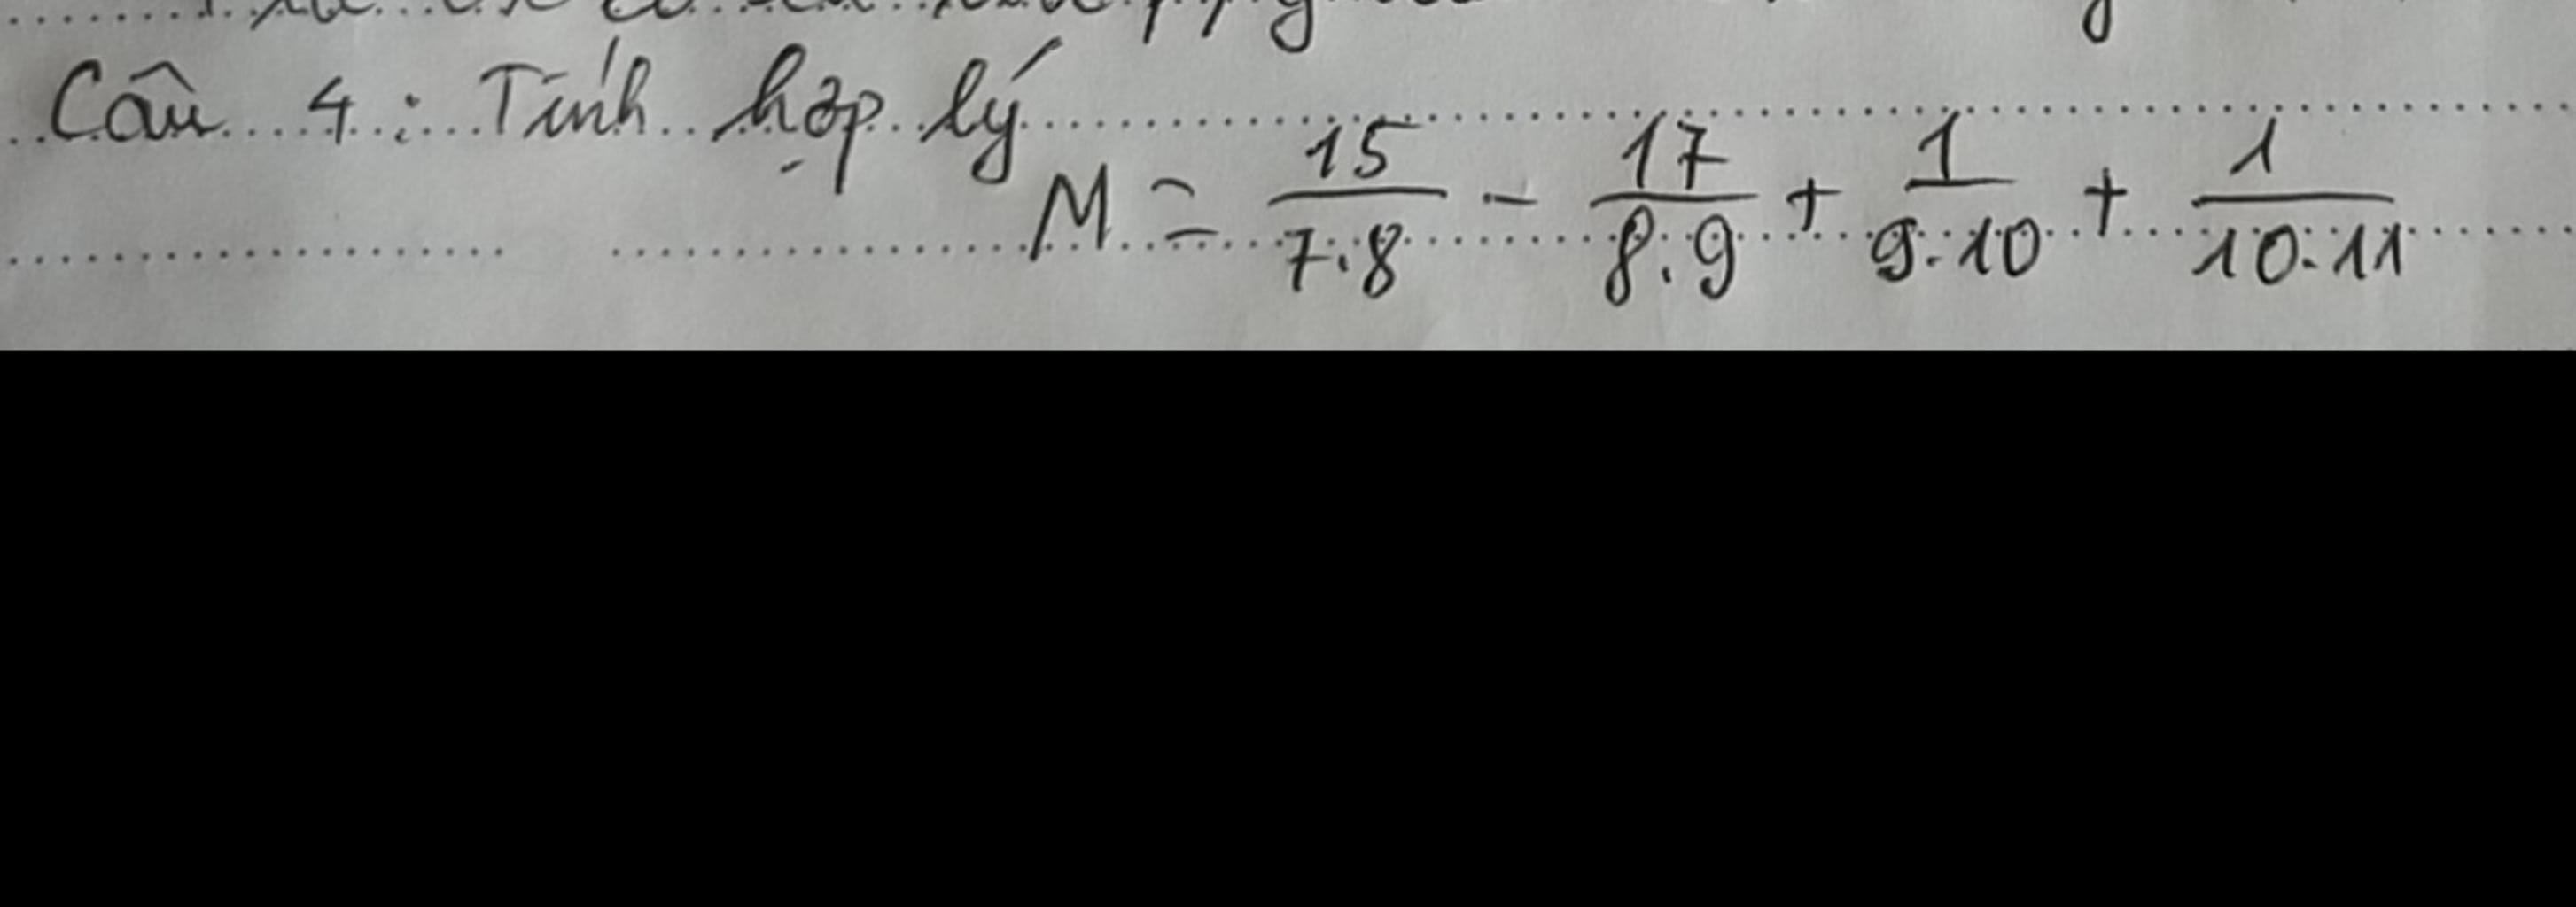 Câu 4: Tính hợp lý
M = 15/7.8 - 17/8.9 + 1/9.10 + 1/10.11